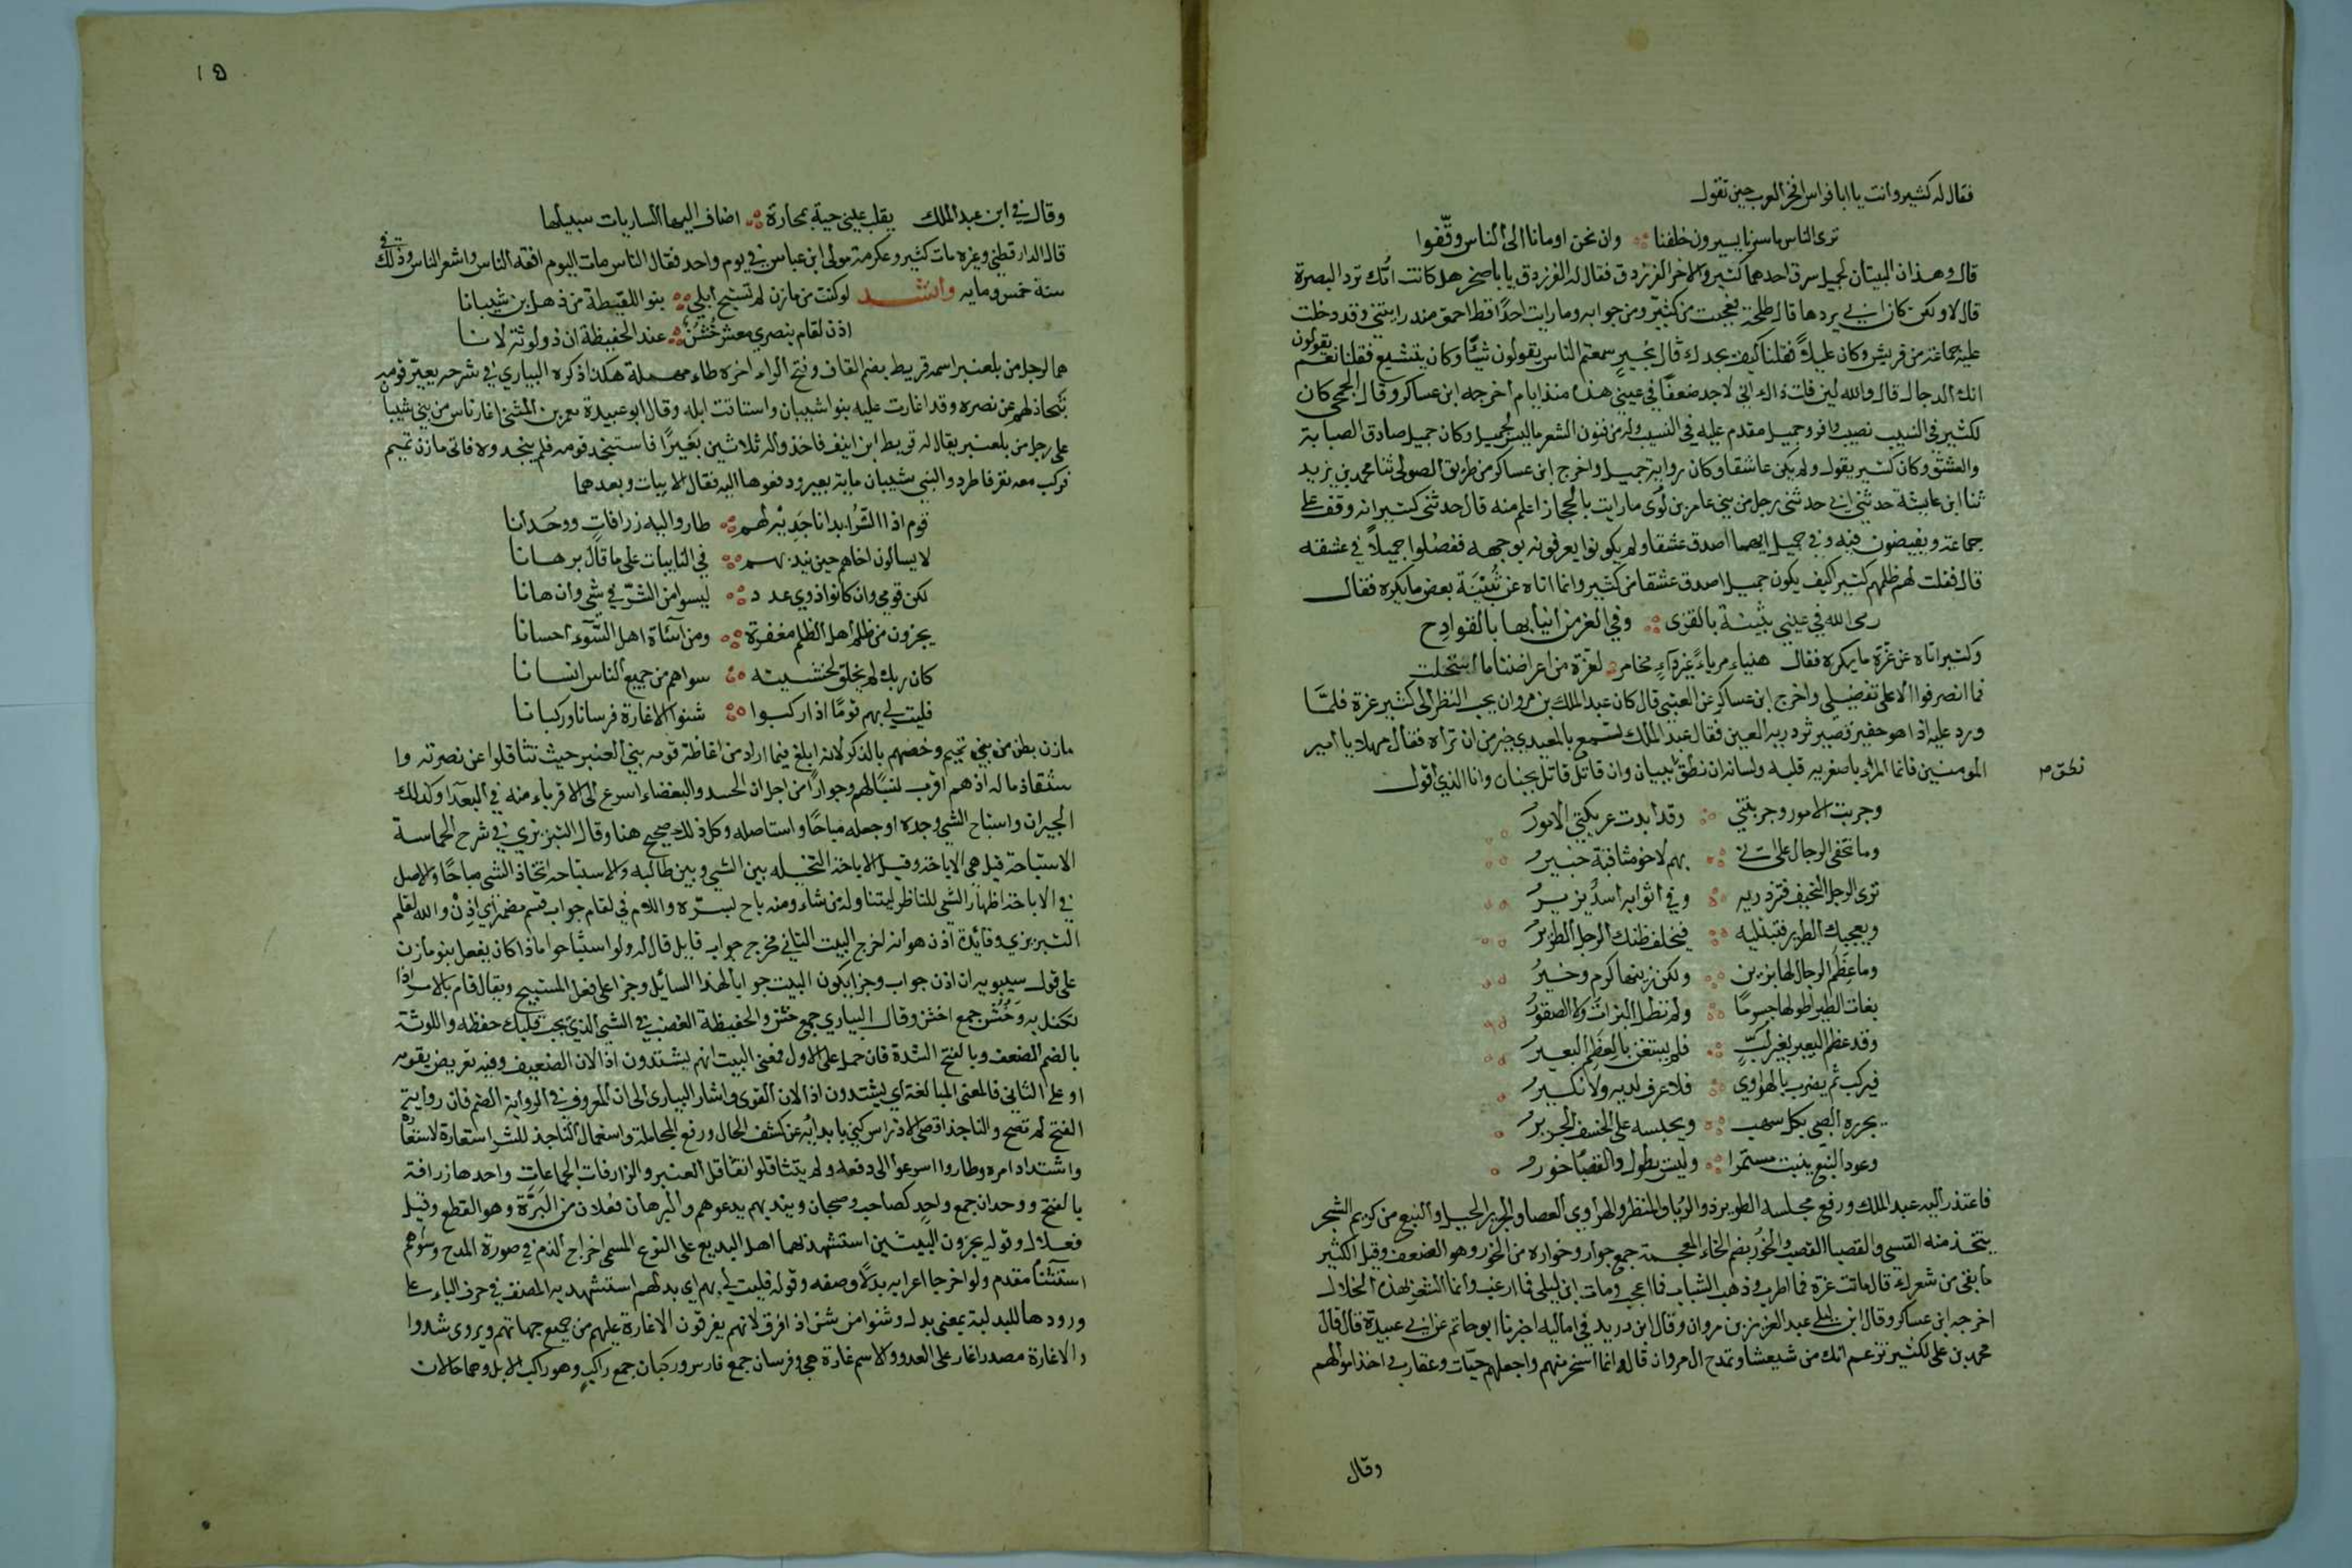 فقال له كثير وانت يا ابا فراس افخر العرب حين تقول
ترى الناس ما سرنا يسيرون خلفنا وان نحن اومانا الى الناس وقّفوا
قال وهذان البيتان لجميل سرق احدهما كثير والاخر الفرزدق فقال له الفرزدق يا با صخر هل كانت امّك ترد البصرة
قال لا ولكن كان ابي يردها قال طلحة فعجبت من كثير ومن جوابه وما رايت احدًا قط احمق منه رايتني وقد دخلت
عليه في جماعة من قريش وكان عليلاً فقلنا كيف تجدك قال بخير سمعتم الناس يقولون شيئًا وكان يتشيع فقلنا نعم يقولون
انك الدجال قال والله لين قلت ذاك اني لاجد ضعفًا في عيني هذه منذ ايام اخرجه ابن عساكر وقال الجمحي كان
لكثير في النسيب نصيب وافر وجميل مقدم عليه في النسيب وله من فنون الشعر ما ليس لجميل وكان جميل صادق الصبابة
والعشق وكان كثير يقول ولم يكن عاشقا وكان راوية جميل واخرج ابن عساكر من طريق الصولي ثنا محمد بن يزيد
ثنا ابن عايشة حدثني ابي حدثني رجل من بني عامر بن لُوى ما رايت بالحجاز اعلم منه قال حدثني كثير انه وقف على
جماعة ويفيضون فيه وفي جميل ايهما اصدق عشقا ولم يكونوا يعرفونه بوجهه ففضلوا جميلاً في عشقه
قال فقلت لهم ظلمتم كثير كيف يكون جميل اصدق عشقا من كثير وانما اتاه عن بُثَيْنَة بعض ما يكره فقال
رمى الله في عيني بثينة بالقذى وفي الغر من انيابها بالقوادح
وكثير اتاه عن عزة ما يكره فقال هنياء مرياءً غير داءٍ مخامر لعزة من اعراضنا ما استحلت
فما انصرفوا الا على تفضيلي واخرج ابن عساكر عن العتبي قال كان عبد الملك بن مروان يحب النظر الى كثير عزة فلمّا
ورد عليه اذا هو حقير قصير تزدريه العين فقال عبد الملك تسمع بالمعيدي خير من ان تراه فقال مهلا يا امير
المومنين فانما المرء باصغريه قلبه ولسانه ان نطق ببيان وان قاتل قاتل بجنان وانا الذي اقول
نطق م
وجربت الامور وجربتني وقد ابدت عريكتي الامورُ
وما تخفى الرجال على اني بهم لاخو مثاقبة خبيرُ
ترى الرجل النحيف فتزدريه وفي اثوابه اسدٌ يزيرُ
ويعجبك الطرير فتبتليه فيخلف ظنك الرجل الطريرُ
وما عِظَم الرجال لها بزين ولكن زينها كرم وخيرُ
بغاث الطير اطولها جسومًا ولم تطل البزاة ولا الصقورُ
وقد عظم البعير بغير لُبّ فلم يستغن بالعِظَم البعيرُ
فيركب ثم يضرب بالهراوي فلا عرف لديه ولا نكيرُ
يجرره الصبي بكل سهب ويحبسه على الخسف الجريرُ
وعود النبع ينبت مستمرا وليس يطول والقصباُ خورُ
فاعتذر اليه عبد الملك ورفع مجلسه الطرير ذو الرُّوا والمنظر والهراوي العصا والجرير الحبل والنبع من كريم الشجر
يتخذ منه القسي والقصبا القصب والخُورُ بضم الخاء المعجمة جمع جوار وخواره من الخور وهو الضعف وقيل لكثير
ما بقى من شعرك قال ماتت عزة فما اطرب وذهب الشباب فما اعجب ومات ابن ليلى فما ارغب وانما الشعر بهذه الخلال
اخرجه ابن عساكر وقال ابن ليلى عبد العزيز بن مروان وقال ابن دريد في اماليه اخبرنا ابو حاتم عن ابي عبيدة قال قال
محمد بن على لكثير تزعم انك من شيعتنا وتمدح ال مروان قال انما اسخر منهم واجعلهم حيّات وعقارب واخذ اموالهم
وقال
١٥
وقال في ابن عبد الملك يقلب عيني حية بمحارة اضاف اليها الساريات سبيلها
قال الدارقطني وغيره مات كثير وعكرمة مولى ابن عباس في يوم واحد فقال الناس مات اليوم افقه الناس واشعر الناس وذلك في
سنة خمس ومايه وانشد لو كنت من مازن لم تستبح ابلي بنو اللقيطة من ذهل بن شيبانا
اذن لقام بنصري معشر خُشُنٌ عند الحفيظة ان ذو لوثة لانا
هما لرجل من بلعنبر اسمه قريط بضم القاف وفتح الراء اخره طاء مهملة هكذا ذكره البياري في شرحه يعيّر قومه
بتخاذلهم عن نصره وقد اغارت عليه بنو شيبان واستاقت ابله وقال ابو عبيدة معمر بن المثنى اغار ناس من بني شيبان
على رجل من بلعنبر يقال له قريط ابن انيف فاخذوا له ثلاثين بَعيرًا فاستنجد قومه فلم ينجدوه فاتى مازن تميم
فركب معه نفر فاطردوا لبني شيبان ماية بعير ودفعوها اليه فقال الابيات وبعدهما
قوم اذا الشر ابدا ناجذيه لهم طاروا اليه زرافاتٍ ووحدانا
لا يسالون اخاهم حين يندبهم في النايبات على ما قال برهانا
لكن قومي وان كانوا ذوي عدد ليسوا من الشرّ في شيء وان هانا
يجزون من ظلم اهل الظلم مغفرة ومن اساة اهل السّوء احسانا
كان ربك لم يخلق لخشيته سواهم من جميع الناس انسانا
فليت لي بهم قومًا اذا ركبوا شنوا الاغارة فرسانا وركبانا
مازن بطن من بني تميم وخصهم بالذكر لانه ابلغ فيما اراد من اغاظة قومه بني العنبر حيث تثاقلوا عن نصرته وا
ستنقاذ ماله اذ هم اقرب نسبًا لهم وجوارًا من اجل ان الحسد والبغضاء اسرع الى الاقرباء منه في البعدا وكذلك
الجيران واستباح الشي وجده او جعله مباحًا واستاصله وكل ذلك صحيح هنا وقال التبريزي في شرح الحماسة
الاستباحة قيل هي الاباحة وقيل الاباحة التخليه بين الشي وبين طالبه والاستباحه اتخاذ الشي مباحًا والاصل
في الاباحة اظهار الشي للناظر ليتناوله من شاء ومنه باح لسرّه واللام في لقام جواب قسم مضمر اي اذن والله لقام
التبريزي وفائدة اذن هو انه اخرج البيت الثاني مخرج جواب قايل قال له ولو استباحوا ماذا كان يفعل بنو مازن
على قول سيبويه ان اذن جواب وجزا يكون البيت جوابًا لهذا السائل وجزا على فعل المستبيح ويقال قام بالامر اذا
تكفل به وخُشُن جمع اخشن وقال البياري جمع خشن والحفيظة الغضب في الشي الذي يجب عليك حفظه واللوثة
بالضم الضعف وبالفتح الشدة فان حمل على الاول فمعنى البيت انهم يشتدون اذا لان الضعيف وفيه تعريض بقومه
او على الثاني فالمعنى المبالغة اي يشتدون اذا لان القوى واشار البيارى الى ان المعروف في الرواية الضم فان رواية
الفتح لم تصح والناجذ اقصى الاضراس كنى بابدائه عن كشف الحال ورفع المجاملة واستعمال الناجذ للشر استعارة لاستعا
واشتداد امره وطاروا اسرعوا الى دفعه ولم يتثاقلوا تثاقل العنبر والزرافات الجماعات واحدها زرافة
بالفتح ووحدان جمع واحد كصاحب وصحبان ويندبهم يدعوهم والبرهان فعلان من البَرَّة وهو القطع وقيل
فعلال وقوله يجزون البيتين استشهد بهما اهل البديع على النوع المسمى اخراج الذم في صورة المدح وسواهم
استثنا مقدم ولو اخر جا اعرابه بدلًا وصفه وقوله فليت لي بهم اي بدلهم استشهد به المصنف في حرف الباء على
ورودها للبدلية بمعنى بدل وشنوا من شن اذا فرق لانهم يفرقون الاغارة عليهم من جميع جهاتهم ويروى شدوا
والاغارة مصدر اغار على العدو والاسم غارة هي وفرسان جمع فارس وركبان جمع راكب وهو راكب الابل وهما حالان